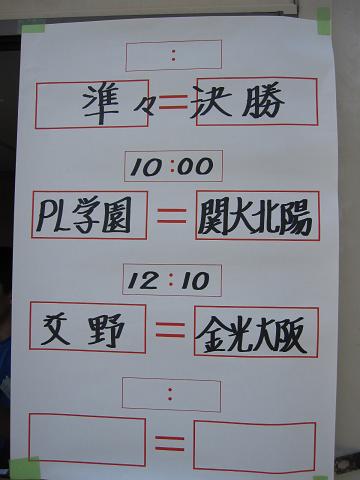 :
準々=決勝
10:00
PL学園=関大北陽
12:10
交野=金光大阪
:
=